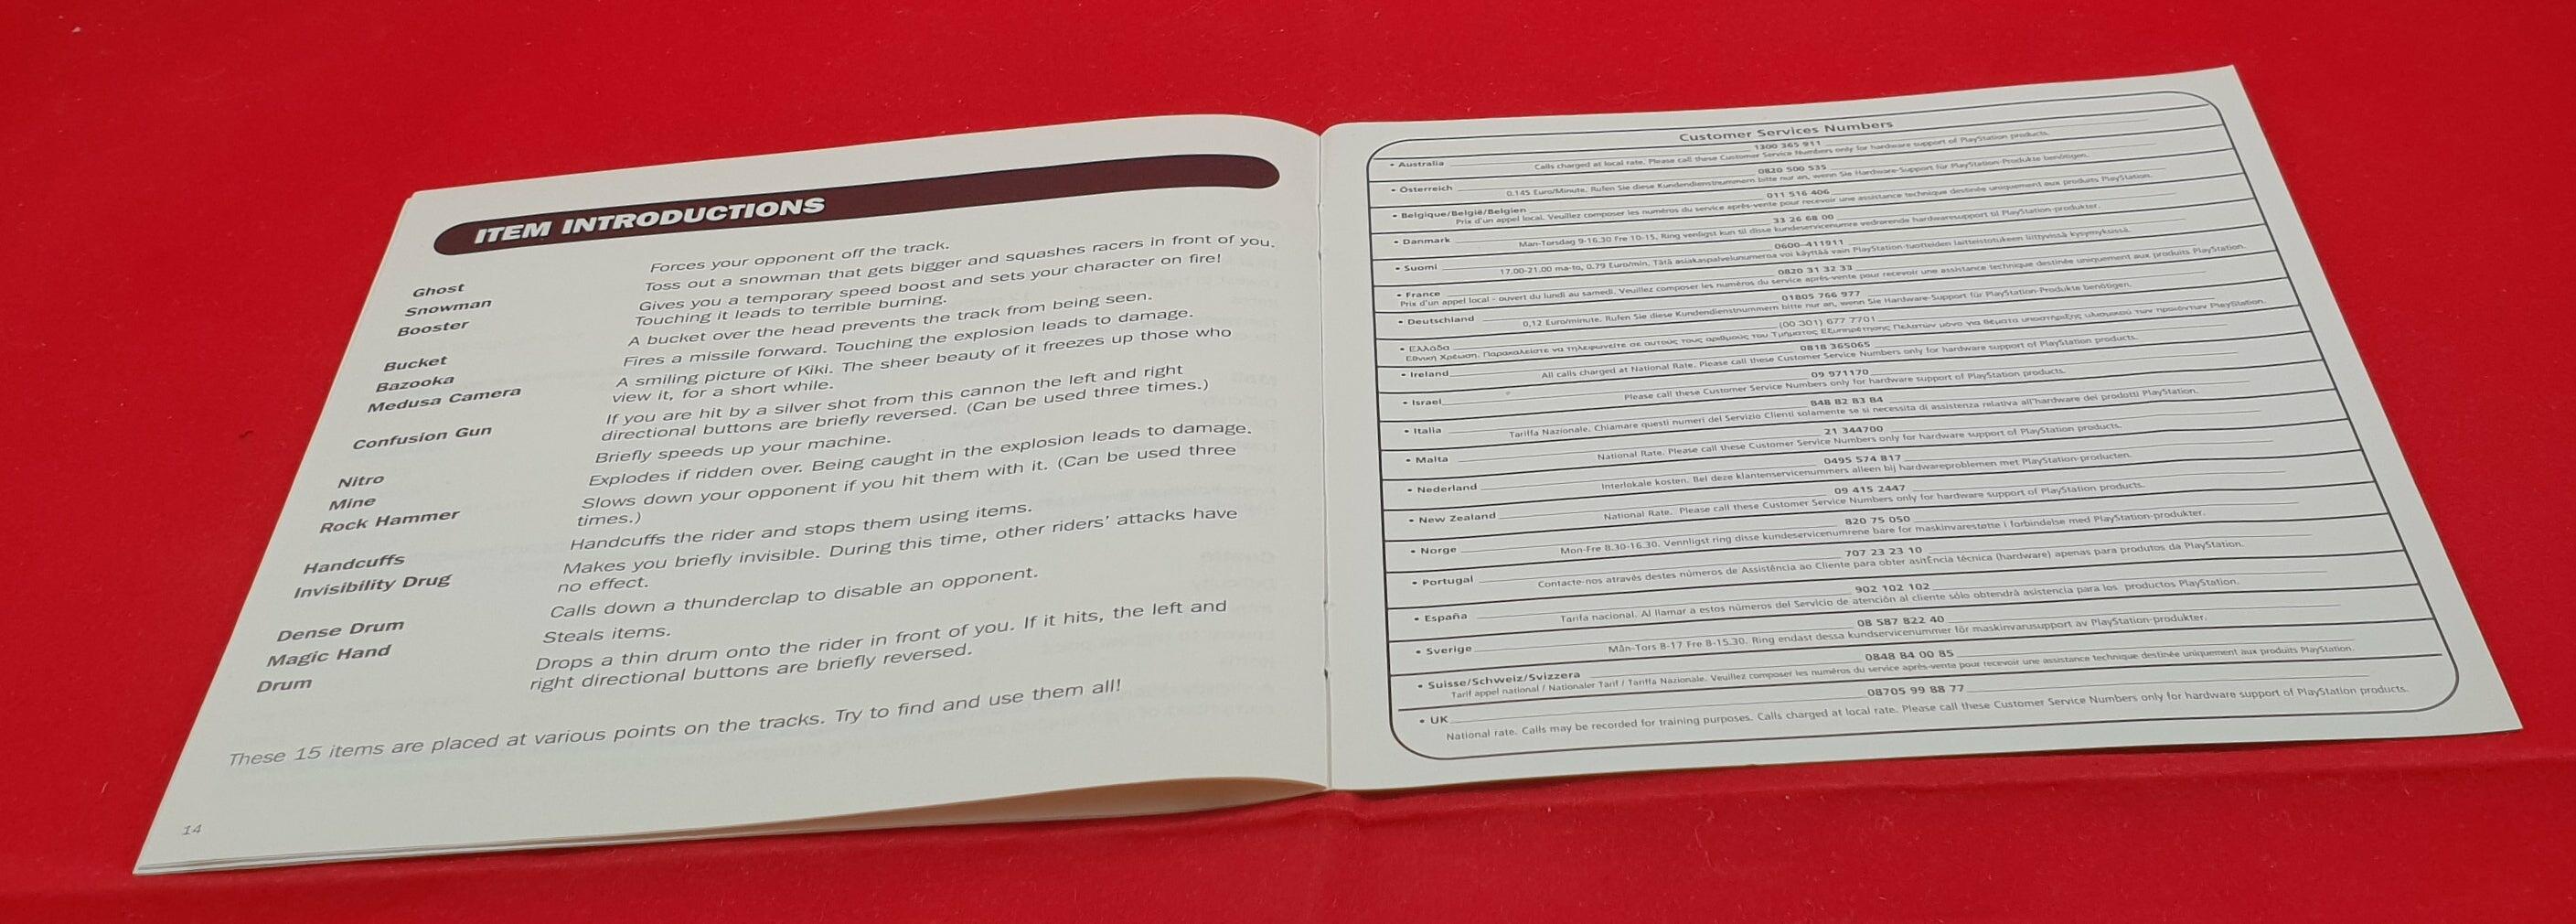 ITEM INTRODUCTIONS
Ghost Forces your opponent off the track.
Snowman Toss out a snowman that gets bigger and squashes racers in front of you.
Booster Gives you a temporary speed boost and sets your character on fire!
Touching it leads to terrible burning.
Bucket A bucket over the head prevents the track from being seen.
Bazooka Fires a missile forward. Touching the explosion leads to damage.
Medusa Camera A smiling picture of Kiki. The sheer beauty of it freezes up those who
view it, for a short while.
Confusion Gun If you are hit by a silver shot from this cannon the left and right
directional buttons are briefly reversed. (Can be used three times.)
Nitro Briefly speeds up your machine.
Mine Explodes if ridden over. Being caught in the explosion leads to damage.
Rock Hammer Slows down your opponent if you hit them with it. (Can be used three
times.)
Handcuffs Handcuffs the rider and stops them using items.
Invisibility Drug Makes you briefly invisible. During this time, other riders' attacks have
no effect.
Dense Drum Calls down a thunderclap to disable an opponent.
Magic Hand Steals items.
Drum Drops a thin drum onto the rider in front of you. If it hits, the left and
right directional buttons are briefly reversed.
These 15 items are placed at various points on the tracks. Try to find and use them all!
14
Customer Services Numbers
• Australia 1300 365 911
Calls charged at local rate. Please call these Customer Service Numbers only for hardware support of PlayStation products.
• Österreich 0820 500 535
0,145 Euro/Minute. Rufen Sie diese Kundendienstnummern bitte nur an, wenn Sie Hardware-Support für PlayStation-Produkte benötigen.
• Belgique/België/Belgien 011 516 406
Prix d'un appel local. Veuillez composer les numéros du service après-vente pour recevoir une assistance technique destinée uniquement aux produits PlayStation.
• Danmark 33 26 68 00
Man-Torsdag 9-16.30 Fre 10-15. Ring venligst kun til disse kundeservicenumre vedrørende hardwaresupport til PlayStation-produkter.
• Suomi 0600-411911
17.00-21.00 ma-to, 0.79 Euro/min. Tätä asiakaspalvelunumeroa voi käyttää vain PlayStation-tuotteiden laitteistotukeen liittyvissä kysymyksissä.
• France 0820 31 32 33
Prix d'un appel local - ouvert du lundi au samedi. Veuillez composer les numéros du service après-vente pour recevoir une assistance technique destinée uniquement aux produits PlayStation.
• Deutschland 01805 766 977
0,12 Euro/minute. Rufen Sie diese Kundendienstnummern bitte nur an, wenn Sie Hardware-Support für PlayStation-Produkte benötigen.
• Ελλάδα (00 301) 677 7701
Εθνική Χρέωση. Παρακαλείστε να τηλεφωνείτε σε αυτούς τους αριθμούς του Τμήματος Εξυπηρέτησης Πελατών μόνο για θέματα υποστήριξης υλισμικού των προϊόντων PlayStation.
• Ireland 0818 365065
All calls charged at National Rate. Please call these Customer Service Numbers only for hardware support of PlayStation products.
• Israel 09 971170
Please call these Customer Service Numbers only for hardware support of PlayStation products.
• Italia 848 82 83 84
Tariffa Nazionale. Chiamare questi numeri del Servizio Clienti solamente se si necessita di assistenza relativa all'hardware dei prodotti PlayStation.
• Malta 21 344700
National Rate. Please call these Customer Service Numbers only for hardware support of PlayStation products.
• Nederland 0495 574 817
Interlokale kosten. Bel deze klantenservicenummers alleen bij hardwareproblemen met PlayStation-producten.
• New Zealand 09 415 2447
National Rate. Please call these Customer Service Numbers only for hardware support of PlayStation products.
• Norge 820 75 050
Mon-Fre 8.30-16.30. Vennligst ring disse kundeservicenumrene bare for maskinvarestøtte i forbindelse med PlayStation-produkter.
• Portugal 707 23 23 10
Contacte-nos através destes números de Assistência ao Cliente para obter asitÊncia técnica (hardware) apenas para produtos da PlayStation.
• España 902 102 102
Tarifa nacional. Al llamar a estos números del Servicio de atención al cliente sólo obtendrá asistencia para los productos PlayStation.
• Sverige 08 587 822 40
Mån-Tors 8-17 Fre 8-15.30. Ring endast dessa kundservicenummer för maskinvarusupport av PlayStation-produkter.
• Suisse/Schweiz/Svizzera 0848 84 00 85
Tarif appel national / Nationaler Tarif / Tariffa Nazionale. Veuillez composer les numéros du service après-vente pour recevoir une assistance technique destinée uniquement aux produits PlayStation.
• UK 08705 99 88 77
National rate. Calls may be recorded for training purposes. Calls charged at local rate. Please call these Customer Service Numbers only for hardware support of PlayStation products.